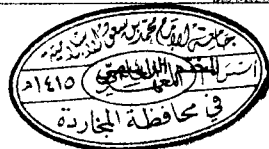 جامعة الإمام محمد بن سعود الإسلامية
أسس
المعهد العلمي
١٤١٥هـ
في محافظة المجاردة